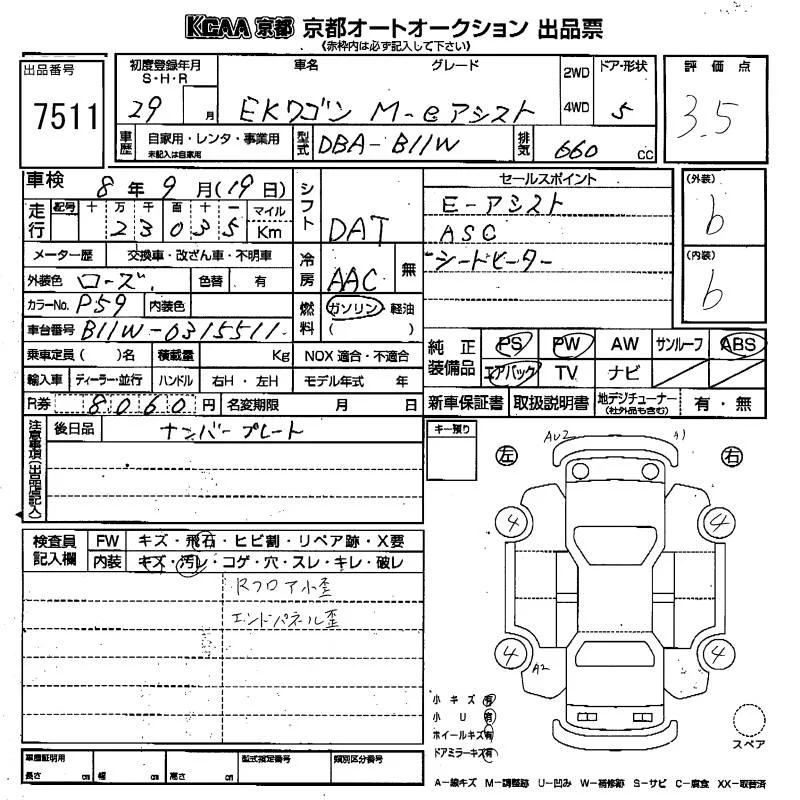 KCAA 京都 京都オートオークション 出品票
《赤枠内は必ず記入して下さい》
出品番号
7511
初度登録年月
S・H・R
29 月
車名 グレード
EKワゴン M-eアシスト
2WD
4WD
ドア・形状
5
評価点
3.5
車歴
自家用・レンタ・事業用
未記入は自家用
型式
DBA-B11W
排気
660 cc
車検 8年 9月(19日)
走行
記号 十 万 千 百 十 一 マイル
23035 Km
シフト
DAT
メーター歴 交換車・改ざん車・不明車
外装色 ローズ 色替 有
冷房
AAC
無
カラーNo. P59 内装色
燃料
ガソリン・軽油
( )
車台番号 B11W-0315511
乗車定員( )名 積載量 Kg NOX 適合・不適合
輸入車 ディーラー・並行 ハンドル 右H・左H モデル年式 年
R券 8060 円 名変期限 月 日
セールスポイント
E-アシスト
ASC
シートヒーター
(外装)
b
(内装)
b
純正装備品
PS PW AW サンルーフ ABS
エアバッグ TV ナビ
新車保証書 取扱説明書 地デジチューナー
(社外品も含む)
有・無
注意事項(出品店記入)
後日品 ナンバープレート
キー預り
検査員記入欄
FW キズ・飛石・ヒビ割・リペア跡・X要
内装 キズ・汚レ・コゲ・穴・スレ・キレ・破レ
Rフロア小歪
エンドパネル歪
左 AU2 A1 右
4 4
4 4
A2
小キズ 有
小U 有
ホイールキズ 有
ドアミラーキズ 有
スペア
車庫証明用
長さ cm 幅 cm 高さ cm
型式指定番号 類別区分番号
A-線キズ M-調整跡 U-凹み W-補修跡 S-サビ C-腐食 XX-取替済